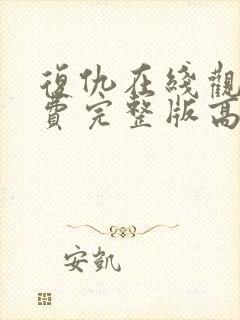 復仇在綫觀
費完整版高
安凱